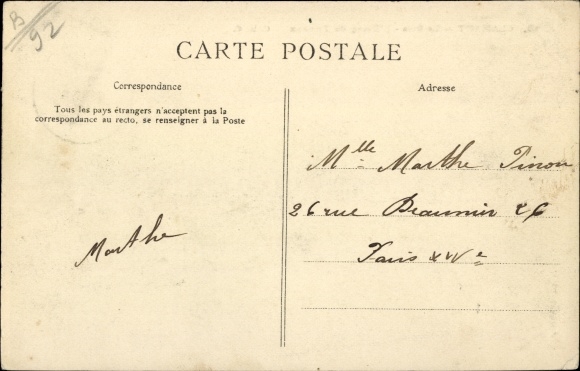 B/92
CARTE POSTALE
Correspondance
Tous les pays étrangers n'acceptent pas la
correspondance au recto, se renseigner à la Poste
Marthe
Adresse
Mlle Marthe Pinon
26 rue Beaunier 26
Paris XIVe